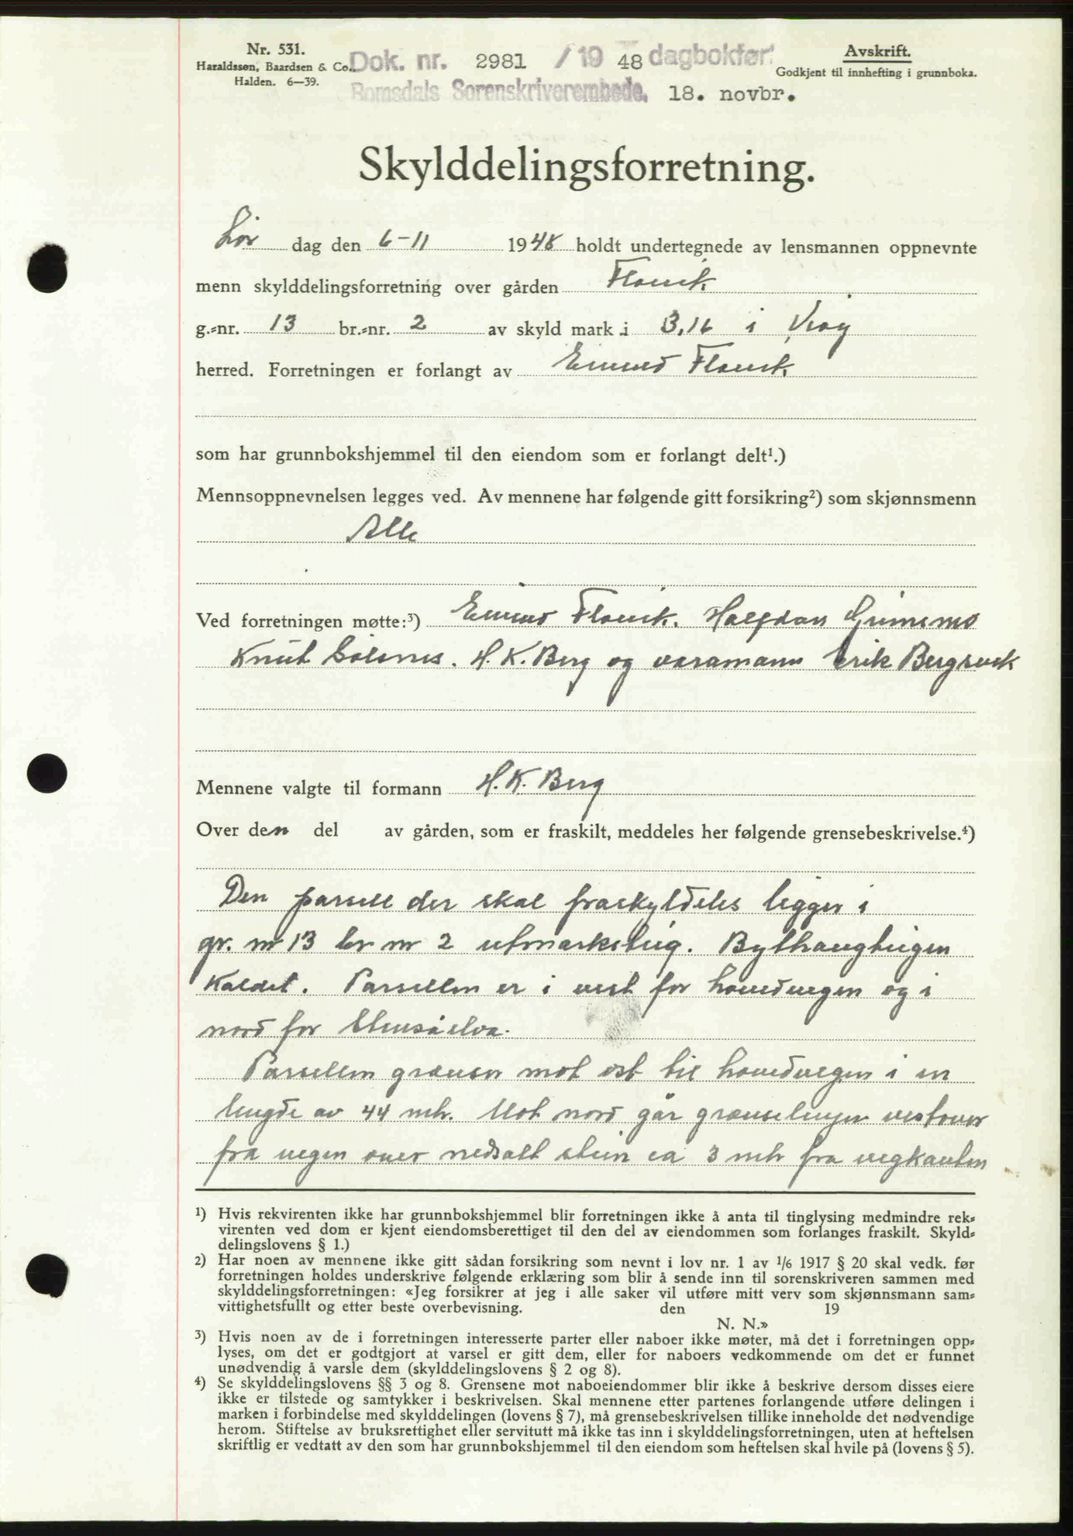 Nr. 531.
Haraldssen, Baardsen & Co..
Halden. 6—39.
Dok. nr. 2981 / 19 48 dagbokført
Romsdals Sorenskriverembede. 18. novbr.
Avskrift.
Godkjent til innhefting i grunnboka.
Skylddelingsforretning.
Lør dag den 6-11 1948 holdt undertegnede av lensmannen oppnevnte
menn skylddelingsforretning over gården Flovik
g.-nr. 13 br.-nr. 2 av skyld mark i 3,16 i Vevy
herred. Forretningen er forlangt av Eimund Flovik
som har grunnbokshjemmel til den eiendom som er forlangt delt¹.)
Mennsoppnevnelsen legges ved. Av mennene har følgende gitt forsikring²) som skjønnsmenn
Alle
Ved forretningen møtte:³) Flovik. Halfdan Grimsmo
Knut Solsnes. H. K. Berg og varamann Erik Bergsvik
Mennene valgte til formann H. K. Berg
Over den del av gården, som er fraskilt, meddeles her følgende grensebeskrivelse.⁴)
Den parsell der skal fraskyldeles ligger i
gr. nr 13 br nr 2 utmarksteig. Bythaugteigen
kaldet. Parsellen er i vest for hovedvegen og i
nord for Stensåelva.
Parsellen grænser mot øst til hovedvegen i en
lengde av 44 mtr. Mot nord går grænselinjen vestover
fra vegen over nedsatt stein ca 3 mtr fra vegkanten
¹) Hvis rekvirenten ikke har grunnbokshjemmel blir forretningen ikke å anta til tinglysing medmindre rek-
virenten ved dom er kjent eiendomsberettiget til den del av eiendommen som forlanges fraskilt. Skyld-
delingslovens § 1.)
²) Har noen av mennene ikke gitt sådan forsikring som nevnt i lov nr. 1 av 1/6 1917 § 20 skal vedk. før
forretningen holdes underskrive følgende erklæring som blir å sende inn til sorenskriveren sammen med
skylddelingsforretningen: «Jeg forsikrer at jeg i alle saker vil utføre mitt verv som skjønnsmann sam-
vittighetsfullt og etter beste overbevisning. den 19
N. N.»
³) Hvis noen av de i forretningen interesserte parter eller naboer ikke møter, må det i forretningen opp-
lyses, om det er godtgjort at varsel er gitt dem, eller for naboers vedkommende om det er funnet
unødvendig å varsle dem (skylddelingslovens § 2 og 8).
⁴) Se skylddelingslovens §§ 3 og 8. Grensene mot naboeiendommer blir ikke å beskrive dersom disses eiere
ikke er tilstede og samtykker i beskrivelsen. Skal mennene etter partenes forlangende utføre delingen i
marken i forbindelse med skylddelingen (lovens § 7), må grensebeskrivelsen tillike inneholde det nødvendige
herom. Stiftelse av bruksrettighet eller servitutt må ikke tas inn i skylddelingsforretningen, uten at heftelsen
skriftlig er vedtatt av den som har grunnbokshjemmel til den eiendom som heftelsen skal hvile på (lovens § 5).